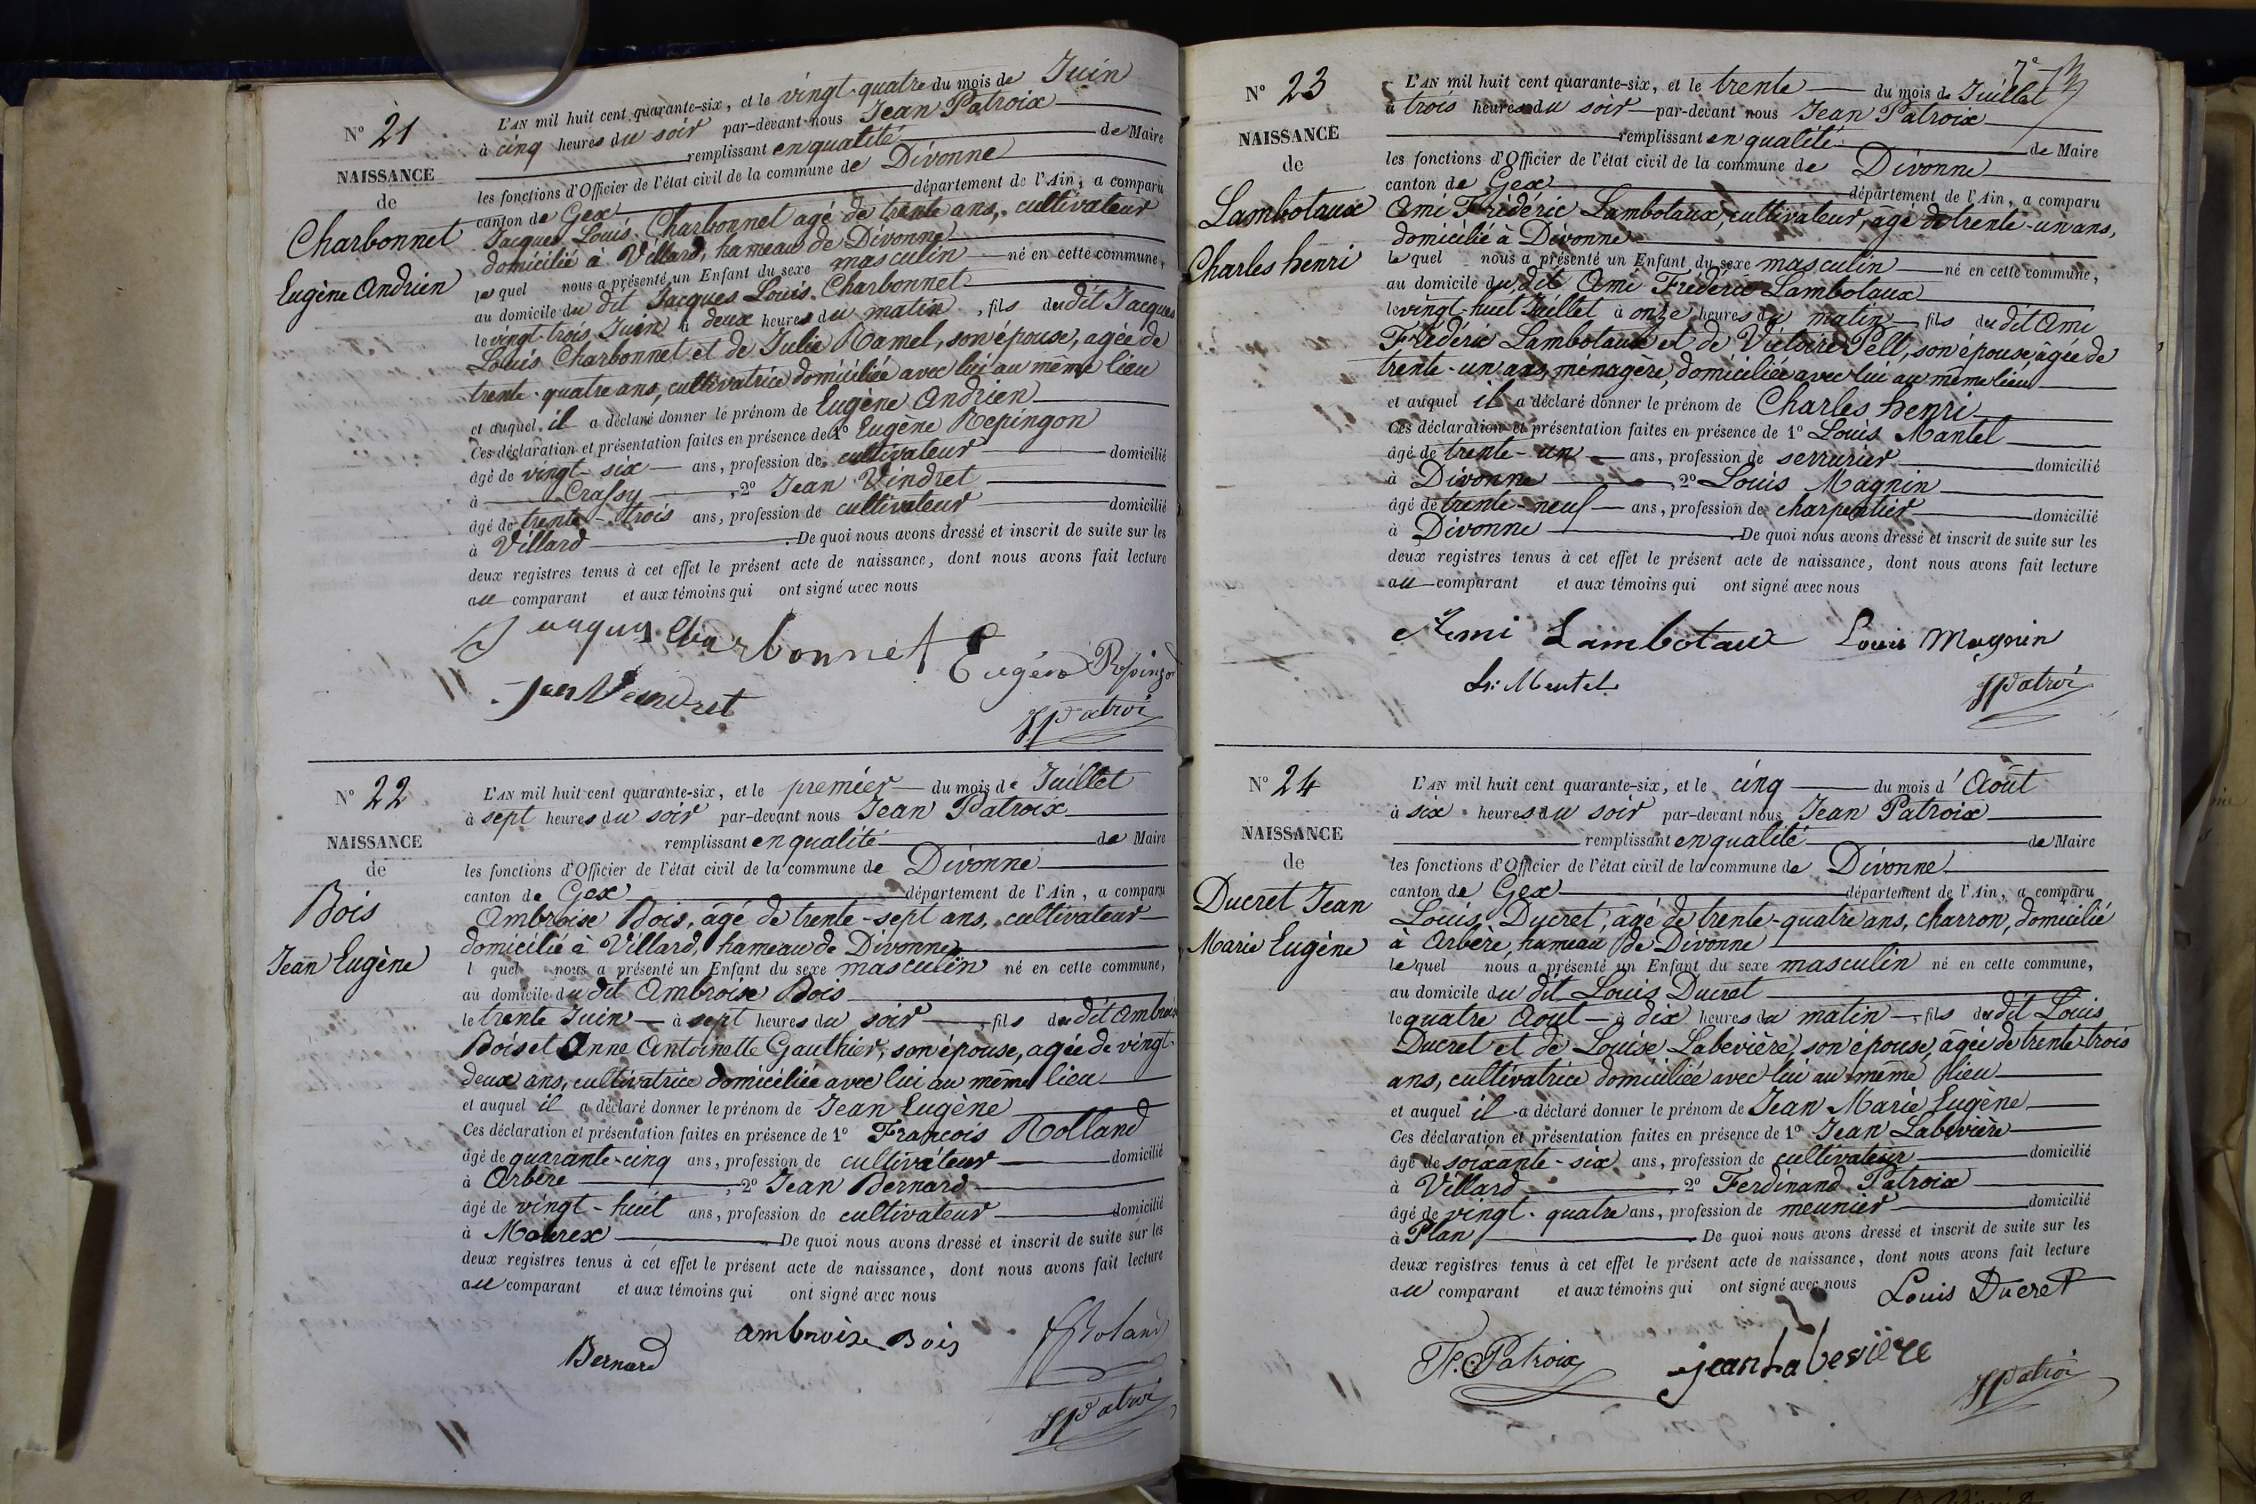 N° 21
NAISSANCE
de
Charbonnet
Eugène Andrien
L'AN mil huit cent quarante-six, et le vingt-quatre du mois de Juin
à cinq heures du soir par-devant nous Jean Patroix
remplissant en qualité de Maire
les fonctions d'Officier de l'état civil de la commune de Divonne
canton de Gex département de l'Ain, a comparu
Jacques Louis Charbonnet agé de trente ans, cultivateur
domicilié à Villard, hameau de Divonne
le quel nous a présenté un Enfant du sexe masculin né en cette commune,
au domicile du dit Jacques Louis Charbonnet
le vingt-trois Juin à deux heures du matin, fils du dit Jacques
Louis Charbonnet et de Julie Ramel, son épouse, agée de
trente-quatre ans, cultivatrice domiciliée avec lui au même lieu
et auquel il a déclaré donner le prénom de Eugène Andrien
Ces déclaration et présentation faites en présence de 1° Eugène Repingon
âgé de vingt-six ans, profession de cultivateur domicilié
à Crassy, 2° Jean Vindret
âgé de trente-trois ans, profession de cultivateur domicilié
à Villard. De quoi nous avons dressé et inscrit de suite sur les
deux registres tenus à cet effet le présent acte de naissance, dont nous avons fait lecture
au comparant et aux témoins qui ont signé avec nous
Jacques Charbonnet Eugène Repingon
Jean Vindret
JPatroi
N° 22
NAISSANCE
de
Bois
Jean Eugène
L'AN mil huit cent quarante-six, et le premier du mois de Juillet
à sept heures du soir par-devant nous Jean Patroix
remplissant en qualité de Maire
les fonctions d'Officier de l'état civil de la commune de Divonne
canton de Gex département de l'Ain, a comparu
Ambroise Bois, âgé de trente-sept ans, cultivateur
domicilié à Villard, hameau de Divonne
l quel nous a présenté un Enfant du sexe masculin né en cette commune,
au domicile du dit Ambroise Bois
le trente Juin à sept heures du soir, fils du dit Ambroise
Bois et Anne Antoinette Gauthier, son épouse, agée de vingt-
deux ans, cultivatrice domiciliée avec lui au même lieu
et auquel il a déclaré donner le prénom de Jean Eugène
Ces déclaration et présentation faites en présence de 1° François Rolland
âgé de quarante-cinq ans, profession de cultivateur domicilié
à Arbère, 2° Jean Bernard
âgé de vingt-huit ans, profession de cultivateur domicilié
à Mourex. De quoi nous avons dressé et inscrit de suite sur les
deux registres tenus à cet effet le présent acte de naissance, dont nous avons fait lecture
au comparant et aux témoins qui ont signé avec nous
Bernard ambroise Bois Roland
JPatroi
7e
N° 23
NAISSANCE
de
Lambotaux
Charles henri
L'AN mil huit cent quarante-six, et le trente du mois de Juillet
à trois heures du soir par-devant nous Jean Patroix
remplissant en qualité de Maire
les fonctions d'Officier de l'état civil de la commune de Divonne
canton de Gex département de l'Ain, a comparu
Ami Frédéric Lambotaux, cultivateur, âgé de trente-un ans,
domicilié à Divonne
le quel nous a présenté un Enfant du sexe masculin né en cette commune,
au domicile du dit Ami Frédéric Lambotaux
le vingt-huit Juillet à onze heures du matin fils du dit Ami
Frédéric Lambotaux et de Victoire Pell, son épouse âgée de
trente-un ans, ménagère, domiciliée avec lui au même lieu
et auquel il a déclaré donner le prénom de Charles henri
Ces déclaration et présentation faites en présence de 1° Louis Mantel
âgé de trente-un ans, profession de serrurier domicilié
à Divonne, 2° Louis Magnin
âgé de trente-neuf ans, profession de charpentier domicilié
à Divonne. De quoi nous avons dressé et inscrit de suite sur les
deux registres tenus à cet effet le présent acte de naissance, dont nous avons fait lecture
au comparant et aux témoins qui ont signé avec nous
Ami Lambotaux Louis Magnin
Ls: Mentel JPatroi
N° 24
NAISSANCE
de
Ducret Jean
Marie Eugène
L'AN mil huit cent quarante-six, et le cinq du mois d'Août
à six heures du soir par-devant nous Jean Patroix
remplissant en qualité de Maire
les fonctions d'Officier de l'état civil de la commune de Divonne
canton de Gex département de l'Ain, a comparu
Louis Ducret, âgé de trente-quatre ans, charron, domicilié
à Arbère, hameau de Divonne
le quel nous a présenté un Enfant du sexe masculin né en cette commune,
au domicile du dit Louis Ducret
le quatre Aout à dix heures du matin, fils du dit Louis
Ducret et de Louise Labevière, son épouse, âgée de trente-trois
ans, cultivatrice domiciliée avec lui au même lieu
et auquel il a déclaré donner le prénom de Jean Marie Eugène
Ces déclaration et présentation faites en présence de 1° Jean Labevière
âgé de soixante-six ans, profession de cultivateur domicilié
à Villard, 2° Ferdinand Patroix
âgé de vingt-quatre ans, profession de meunier domicilié
à Plan. De quoi nous avons dressé et inscrit de suite sur les
deux registres tenus à cet effet le présent acte de naissance, dont nous avons fait lecture
au comparant et aux témoins qui ont signé avec nous Louis Ducret
F. Patroix jean Labevière JPatroi